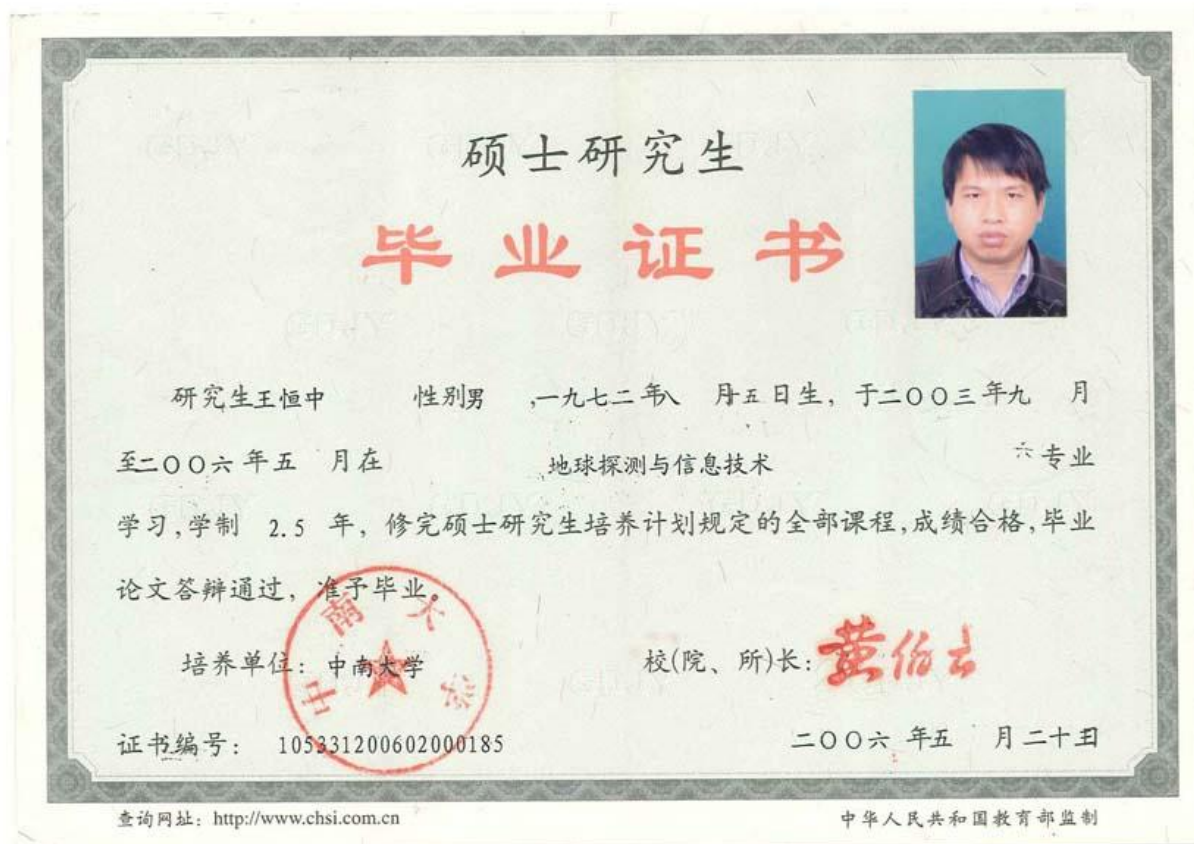 硕士研究生
毕业证书
研究生王恒中 性别男 ,一九七二年八 月五日生，于二〇〇三年九 月
至二〇〇六年五 月在 地球探测与信息技术 专业
学习,学制 2.5 年，修完硕士研究生培养计划规定的全部课程,成绩合格,毕业
论文答辩通过，准予毕业。
培养单位：中南大学 校(院、所)长：黄伯云
中南大学
证书编号： 105331200602000185 二〇〇六 年五 月二十日
查询网址：http://www.chsi.com.cn 中华人民共和国教育部监制